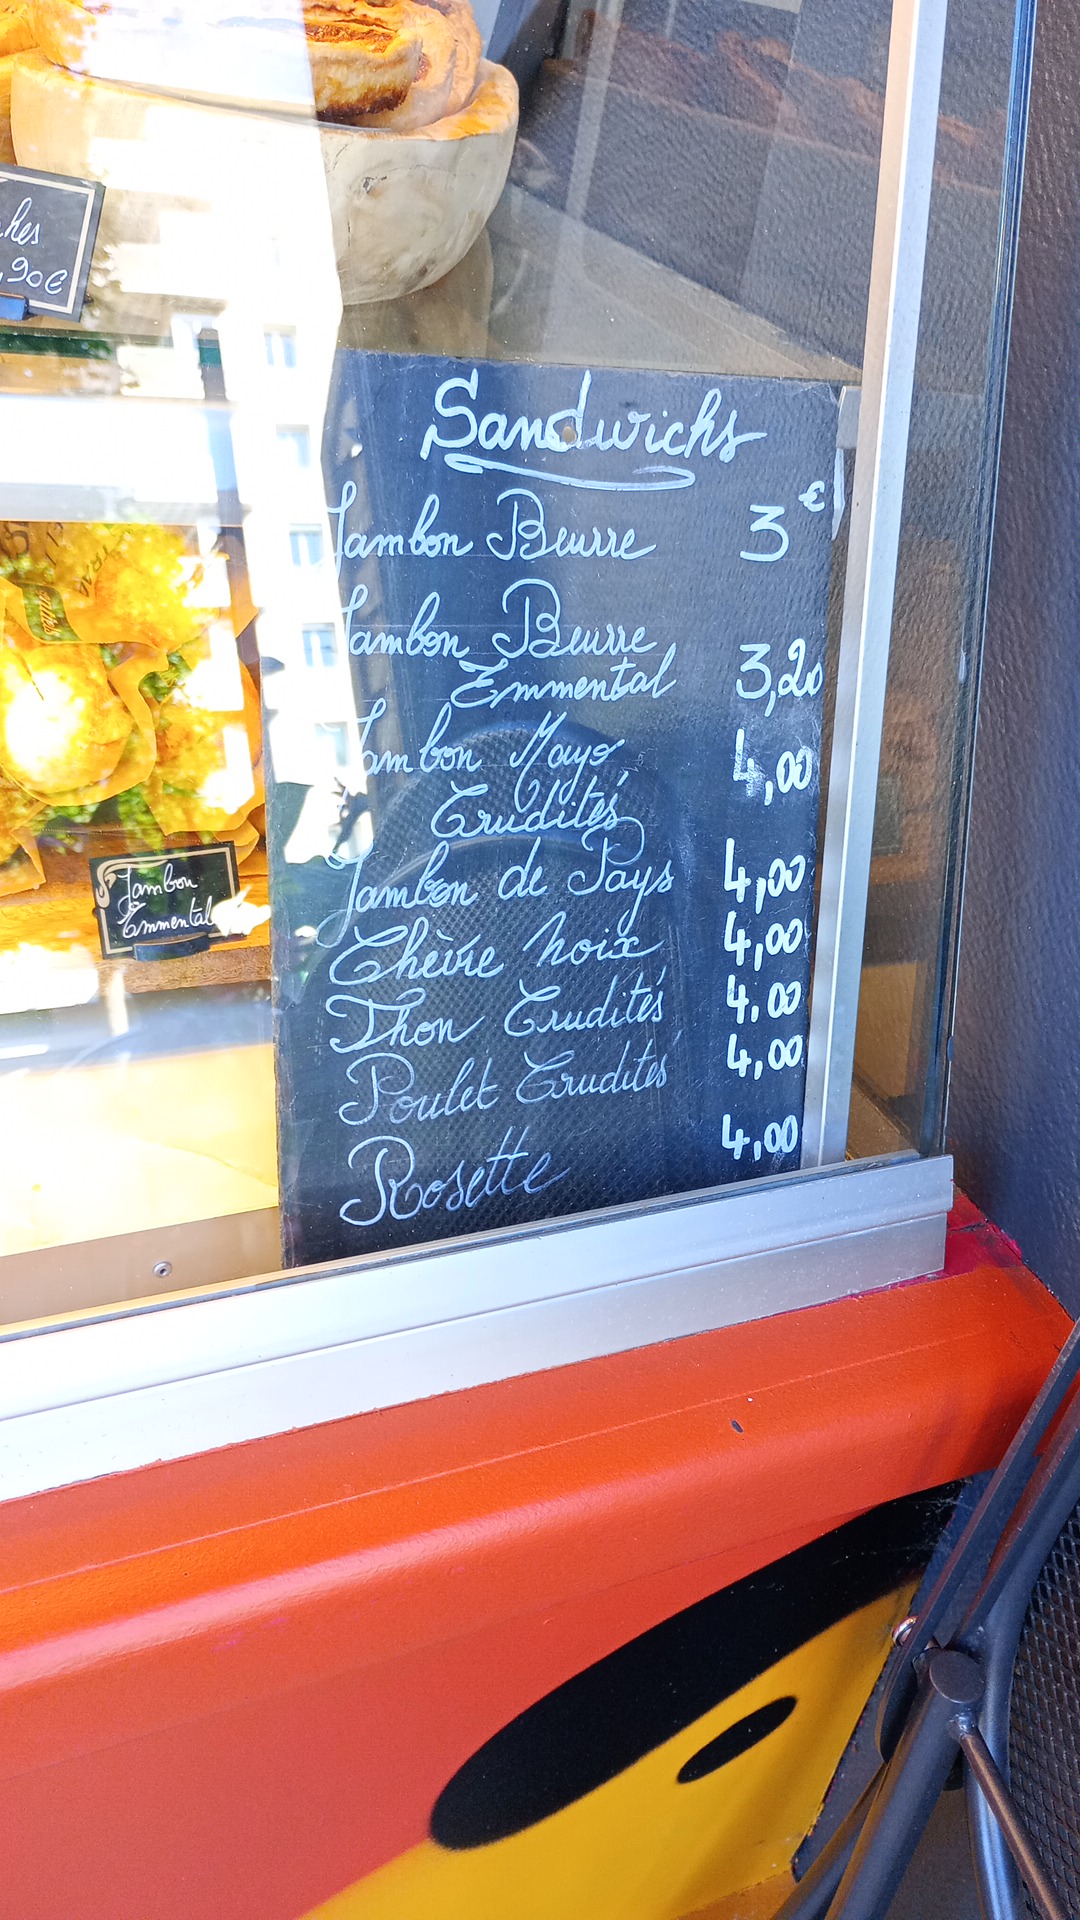 ,90€
Sandwichs
Jambon Beurre 3€
Jambon Beurre
Emmental 3,20
Jambon Mayo 4,00
Crudités
Jambon de Pays 4,00
Chèvre noix 4,00
Thon Crudités 4.00
Poulet Crudités 4,00
Rosette 4,00
Jambon
Emmental